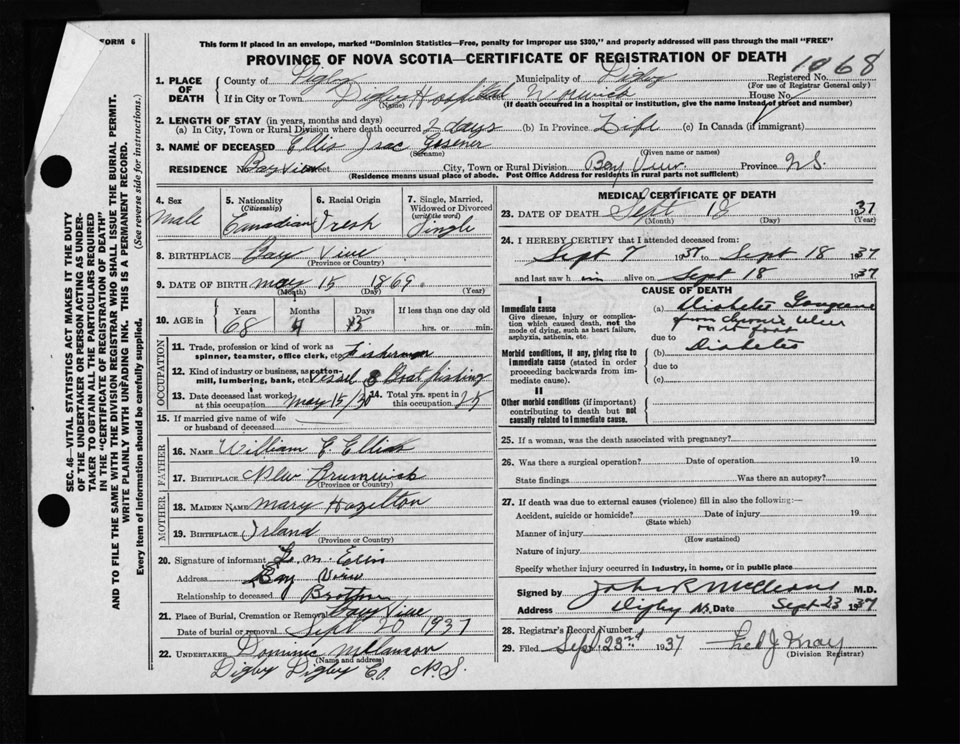 FORM 6
This form if placed in an envelope, marked "Dominion Statistics—Free, penalty for improper use $300," and properly addressed will pass through the mail "FREE"
PROVINCE OF NOVA SCOTIA—CERTIFICATE OF REGISTRATION OF DEATH
1068
1. PLACE OF DEATH County of Digby Municipality of Digby Registered No.
(For use of Registrar General only)
If in City or Town Digby Hospital Warwick House No.
(Name) (If death occurred in a hospital or institution, give the name instead of street and number)
2. LENGTH OF STAY (in years, months and days)
(a) In City, Town or Rural Division where death occurred 2 days (b) In Province Life (c) In Canada (if immigrant)
3. NAME OF DECEASED Ellis Isac
(Surname) (Given name or names)
RESIDENCE Bay View City, Town or Rural Division Bay View Province N.S.
(Residence means usual place of abode. Post Office Address for residents in rural parts not sufficient)
4. Sex Male
5. Nationality (Citizenship) Canadian
6. Racial Origin Iresh
7. Single, Married, Widowed or Divorced (write the word) Single
8. BIRTHPLACE Bay View
(Province or Country)
9. DATE OF BIRTH May 15 1869
(Month) (Day) (Year)
10. AGE in Years Months Days If less than one day old
68 4 hrs. or min.
OCCUPATION
11. Trade, profession or kind of work as spinner, teamster, office clerk, etc. Fisherman
12. Kind of industry or business, as cotton-mill, lumbering, bank, etc. Vessel & Boat fishing
13. Date deceased last worked at this occupation May 15/30 14. Total yrs. spent in this occupation
15. If married give name of wife or husband of deceased
FATHER
16. NAME William E. Ellis
17. BIRTHPLACE New Brunswick
(Province or Country)
MOTHER
18. MAIDEN NAME Mary Hazelton
19. BIRTHPLACE Irland
(Province or Country)
20. Signature of informant
Address Bay View
Relationship to deceased Brother
21. Place of Burial, Cremation or Removal Bay View
Date of burial or removal Sept 20 1937
22. UNDERTAKER Dominic Melanson
(Name and address)
Digby Digby Co. N.S.
MEDICAL CERTIFICATE OF DEATH
23. DATE OF DEATH Sept 18 1937
(Month) (Day) (Year)
24. I HEREBY CERTIFY that I attended deceased from:
Sept 7 1937 to Sept 18 1937
and last saw h im alive on Sept 18 1937
CAUSE OF DEATH
I
Immediate cause
Give disease, injury or complication which caused death, not the mode of dying, such as heart failure, asphyxia, asthenia, etc.
(a) Diabetes Gangrene
from chronic ulcer
on foot
due to
Morbid conditions, if any, giving rise to immediate cause (stated in order proceeding backwards from immediate cause).
(b) Diabetes
due to
(c)
II
Other morbid conditions (if important) contributing to death but not causally related to immediate cause.
25. If a woman, was the death associated with pregnancy?
26. Was there a surgical operation? Date of operation 19
State findings Was there an autopsy?
27. If death was due to external causes (violence) fill in also the following:—
Accident, suicide or homicide? Date of injury 19
(State which)
Manner of injury
(How sustained)
Nature of injury
Specify whether injury occurred in industry, in home, or in public place
Signed by John R McCleave M.D.
Address Digby NS. Date Sept 23 1937
28. Registrar's Record Number
29. Filed Sept. 23rd 1937 Fred J.
(Division Registrar)
SEC. 46—VITAL STATISTICS ACT MAKES IT THE DUTY
OF THE UNDERTAKER OR PERSON ACTING AS UNDER-
TAKER TO OBTAIN ALL THE PARTICULARS REQUIRED
IN THE "CERTIFICATE OF REGISTRATION OF DEATH"
AND TO FILE THE SAME WITH THE DIVISION REGISTRAR WHO SHALL ISSUE THE BURIAL PERMIT.
WRITE PLAINLY WITH UNFADING INK. THIS IS A PERMANENT RECORD.
Every item of information should be carefully supplied. (See reverse side for instructions.)